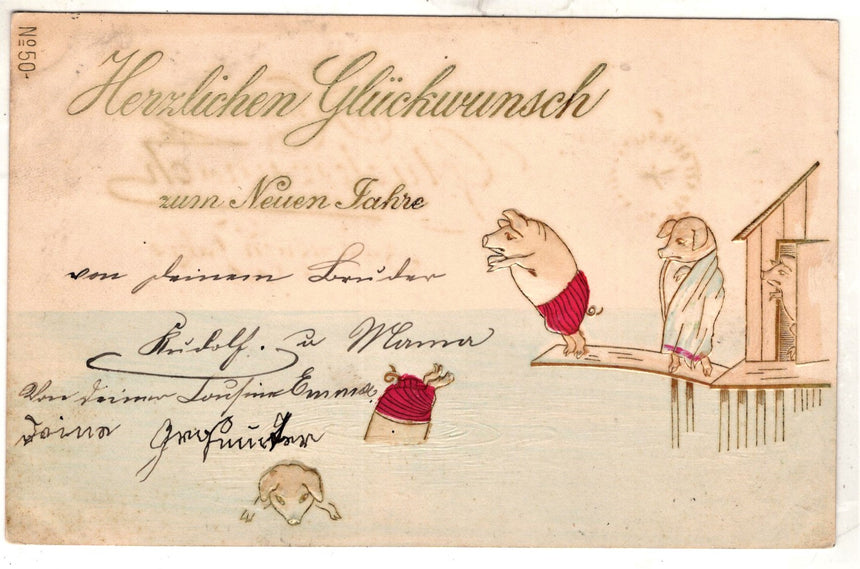 No 50.
Herzlichen Glückwunsch
zum Neuen Jahre
von deinem Bruder
Rudolf. u Mama
Von deiner Cousine Emma.
Deine Großmutter